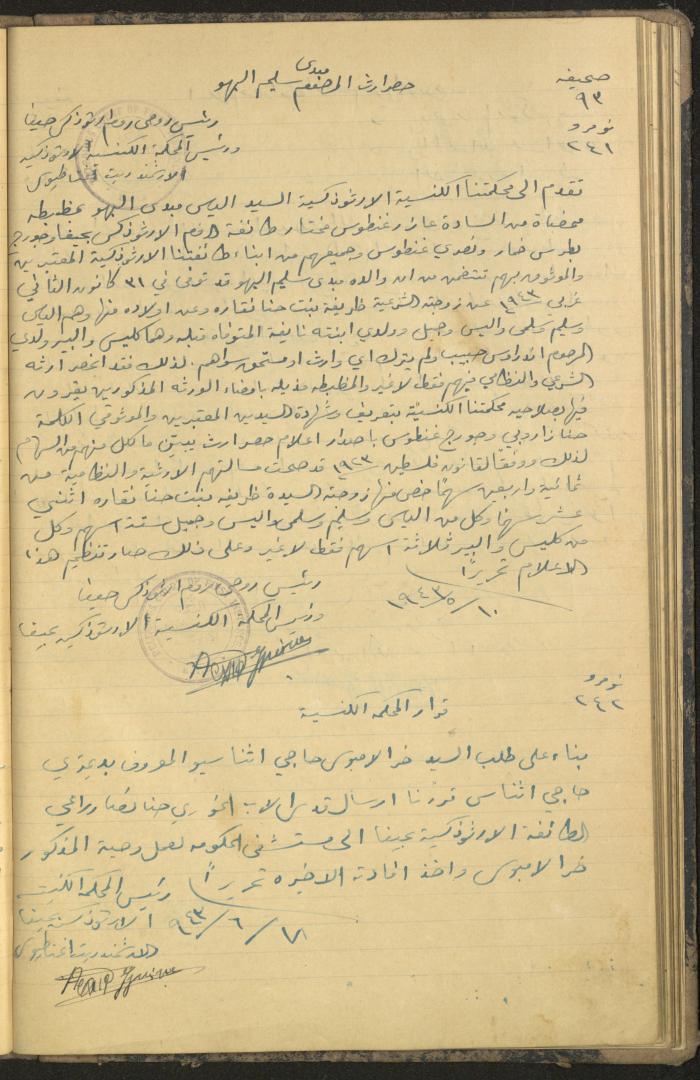 صحيفه
٩٣
نومرو
٢٤١
حصر ارث المرحوم مبدى سليم البهو
رئيس روحي روم ارثوذكس حيفا
ورئيس المحكمة الكنسية الارثوذكسية
الارشمندريت اغناطيوس
تقدم الى محكمتنا الكنسية الارثوذكسية السيد الياس مبدى البهو بمظبطه
ممضاة من السادة عائز غنطوس مختار طائفة الروم الارثوذكس بحيفا وجورج
بطرس خمار ونصري غنطوس وجميعهم من ابناء طائفتنا الارثوذكسية المعتبرين
والموثوق بهم تتضمن من ان والده مبدى سليم البهو قد توفى في ٣١ كانون الثاني
غربي ١٩٤٣ عن زوجته الشرعية ظريفة بنت حنا نقاره وعن اولاده منها وهم الياس
وسليم وسلمى واليس وجبل وولدي ابنته نايفة المتوفاه قبله وهما كليس والبير ولدي
المرحوم اندراوس حبيب ولم يترك اي وارث او مستحق سواهم. لذلك فقد انحصر ارثه
الشرعي والنظامي فيهم فقط لا غير والمظبطه مذيله بامضاء الورثه المذكورين يقرون
فيها بصلاحيه محكمتنا الكنسية بتعريف وشهادة السيدين المعتبرين والموثوقي الكلمة
حنا زاروبي وجورج غنطوس باصدار اعلام حصر ارث يبين ما لكل منهم من السهام
لذلك ووفقاً لقانون فلسطين ١٩٢٣ قد صحت مسالتهم الارثية والنظامية من
ثمانية واربعين سهماً خص منها زوجته السيدة ظريفه بنت حنا نقاره اثني
عشر سهماً وكل من الياس وسليم وسلمى واليس وجبيل ستة اسهم وكل
من كليس والبير ثلاثة اسهم فقط لا غير وعلى ذلك صار تنظيم هذا
الاعلام تحريراً
١٠/٥/١٩٤٣
رئيس روحي الروم الارثوذكس حيفا
ورئيس المحكمة الكنسية الارثوذكسية بحيفا
نومرو
٢٤٢
قرار المحكمه الكنسية
بناء على طلب السيد خرالامبوس حاجي اثناسيو المعروف بديمتري
حاجي اثناس قررنا ارسال قدس الاب الخوري حنا نصار راعي
الطائفة الارثوذكسية بحيفا الى مستشفى الحكومه لعمل وصية المذكور
خرالامبوس واخذ افادته الاخيره تحريراً
١٧/٦/٩٤٣
رئيس المحكمة الكنسية
الارثوذكسية بحيفا
الارشمندريت اغناطيوس